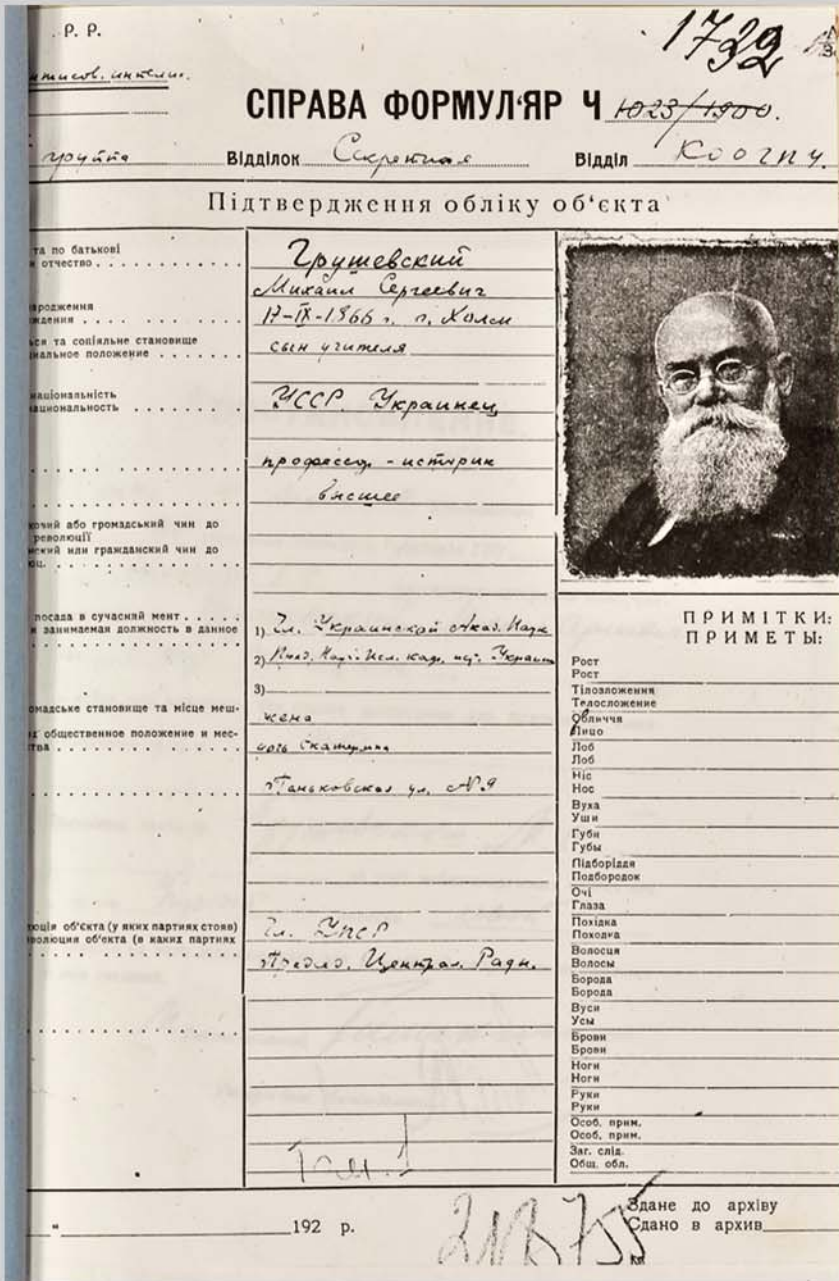 . Р. Р.
1732
СПРАВА ФОРМУЛ'ЯР Ч 1023/1900.
группа Відділок Секретная Відділ КООГПУ.
Підтвердження обліку об'єкта
та по батькові
отчество
Грушевский
Михаил Сергеевич
ародження
ждения
17-IX-1866 г. г. Холм
ься та соціяльне становище
иальное положение
сын учителя
національність
национальность
УССР. Украинец
профессор - историк
высшее
кочий або громадський чин до
революції
нский или гражданский чин до
посада в сучасний мент
и занимаемая должность в данное
1) Чл. Украинской Акад. Наук
2)
3)
омадське становище та місце меш-
общественное положение и мес-
тва
жена
дочь Екатерина
Паньковская ул. №9
юція об'єкта (у яких партиях стояв)
волюция об'екта (в каких партиях
Чл. УПСР
Председ. Централ. Рады.
Том. 1
ПРИМІТКИ:
ПРИМЕТЫ:
Рост
Рост
Тілозложення
Телосложение
Обличчя
Лицо
Лоб
Лоб
Ніс
Нос
Вуха
Уши
Губи
Губы
Підборіддя
Подбородок
Очі
Глаза
Похідка
Походка
Волосся
Волосы
Борода
Борода
Вуси
Усы
Брови
Брови
Ноги
Ноги
Руки
Руки
Особ. прим.
Особ. прим.
Заг. слід.
Общ. обл.
" 192 р.
Здане до архіву
Сдано в архив